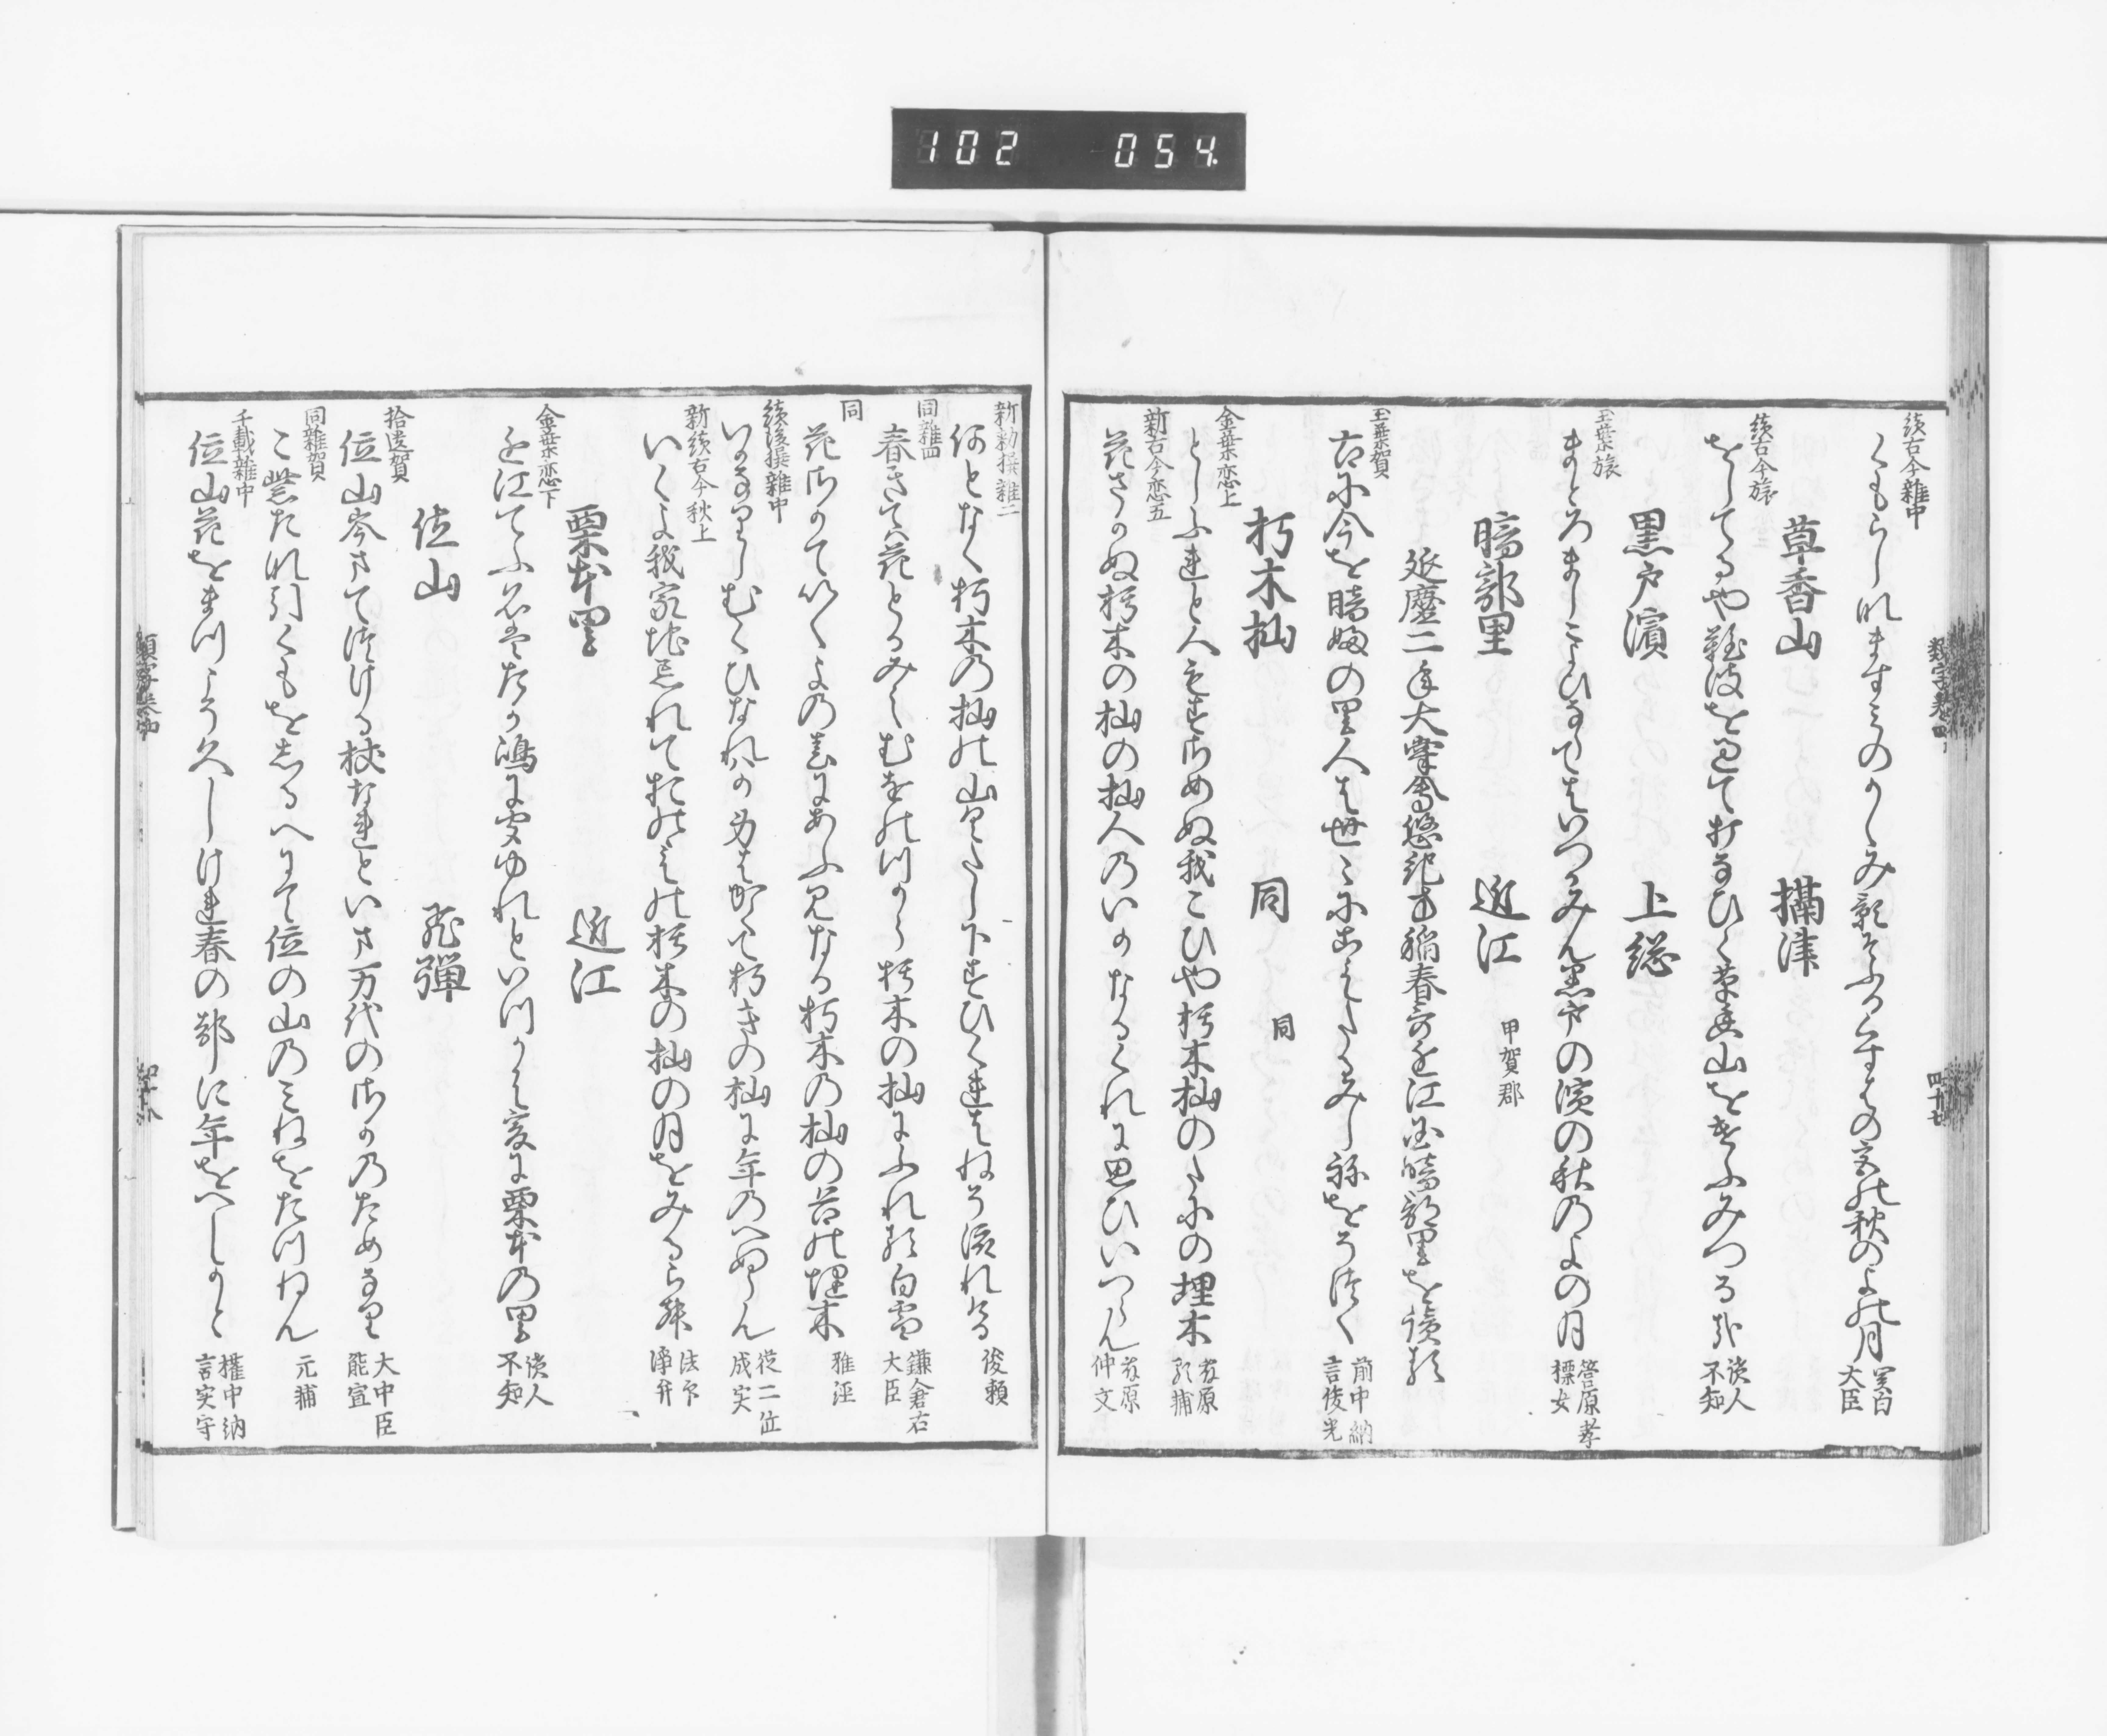 102 054
続古今雑中
くもらしなますみのかゝみ影そふるくすはの宮の秋のよの月
関白
大臣
草香山 摂津
続古今旅
をしてるや難波を過て打なひく草香山をけふみつる哉
読人
不知
黒戸濱 上総
玉葉旅
まとろましこよひならてはいつかみん黒戸の濱の秋のよの月
菅原孝
標女
暗部里 近江 甲賀郡
延慶二年大嘗會悠紀方稲舂哥近江国暗部里を讀る
玉葉賀
古に今を暗婦の里人は世ゝにこえたるみしねをそつく
前中納
言俊光
朽木杣 同 同
金葉恋上
としふれと人もすさめぬ我こひや朽木杣のたにの埋木
藤原
顕輔
新古今恋五
花さかぬ朽木の杣の杣人のいかなるくれに思ひいつらん
藤原
仲文
類字巻四
四十七
新勅撰雑二
何となく朽木の杣の山くたし下すひくれはねそ流れける
俊頼
同雑四
春きては花とかみらむをのつから朽木の杣にふれる白雪
鎌倉右
大臣
同
花さかていくよの春にあふみなる朽木の杣の谷の埋木
雅経
続後撰雑中
いかなりしむくひなれはか身はかくて朽きの杣に年のへぬらん
従二位
成実
新続古今秋上
いくよ我家地忘れておのゝえの朽木の杣の月をみるらむ
法印
浄弁
栗本里 近江
金葉恋下
近江てふ名はたか嶋に聞ゆれといつらは爰に栗本の里
読人
不知
位山 飛彈
拾遺賀
位山峯まてつける杖なれといま万代のさかのためなり
大中臣
能宣
同雑賀
こ紫たな引くもをしるへにて位の山のみねをたつねん
元輔
千載雑中
位山花をまつこそ久しけれ春の都に年をへしかと
権中納
言実守
類字巻四
四十八